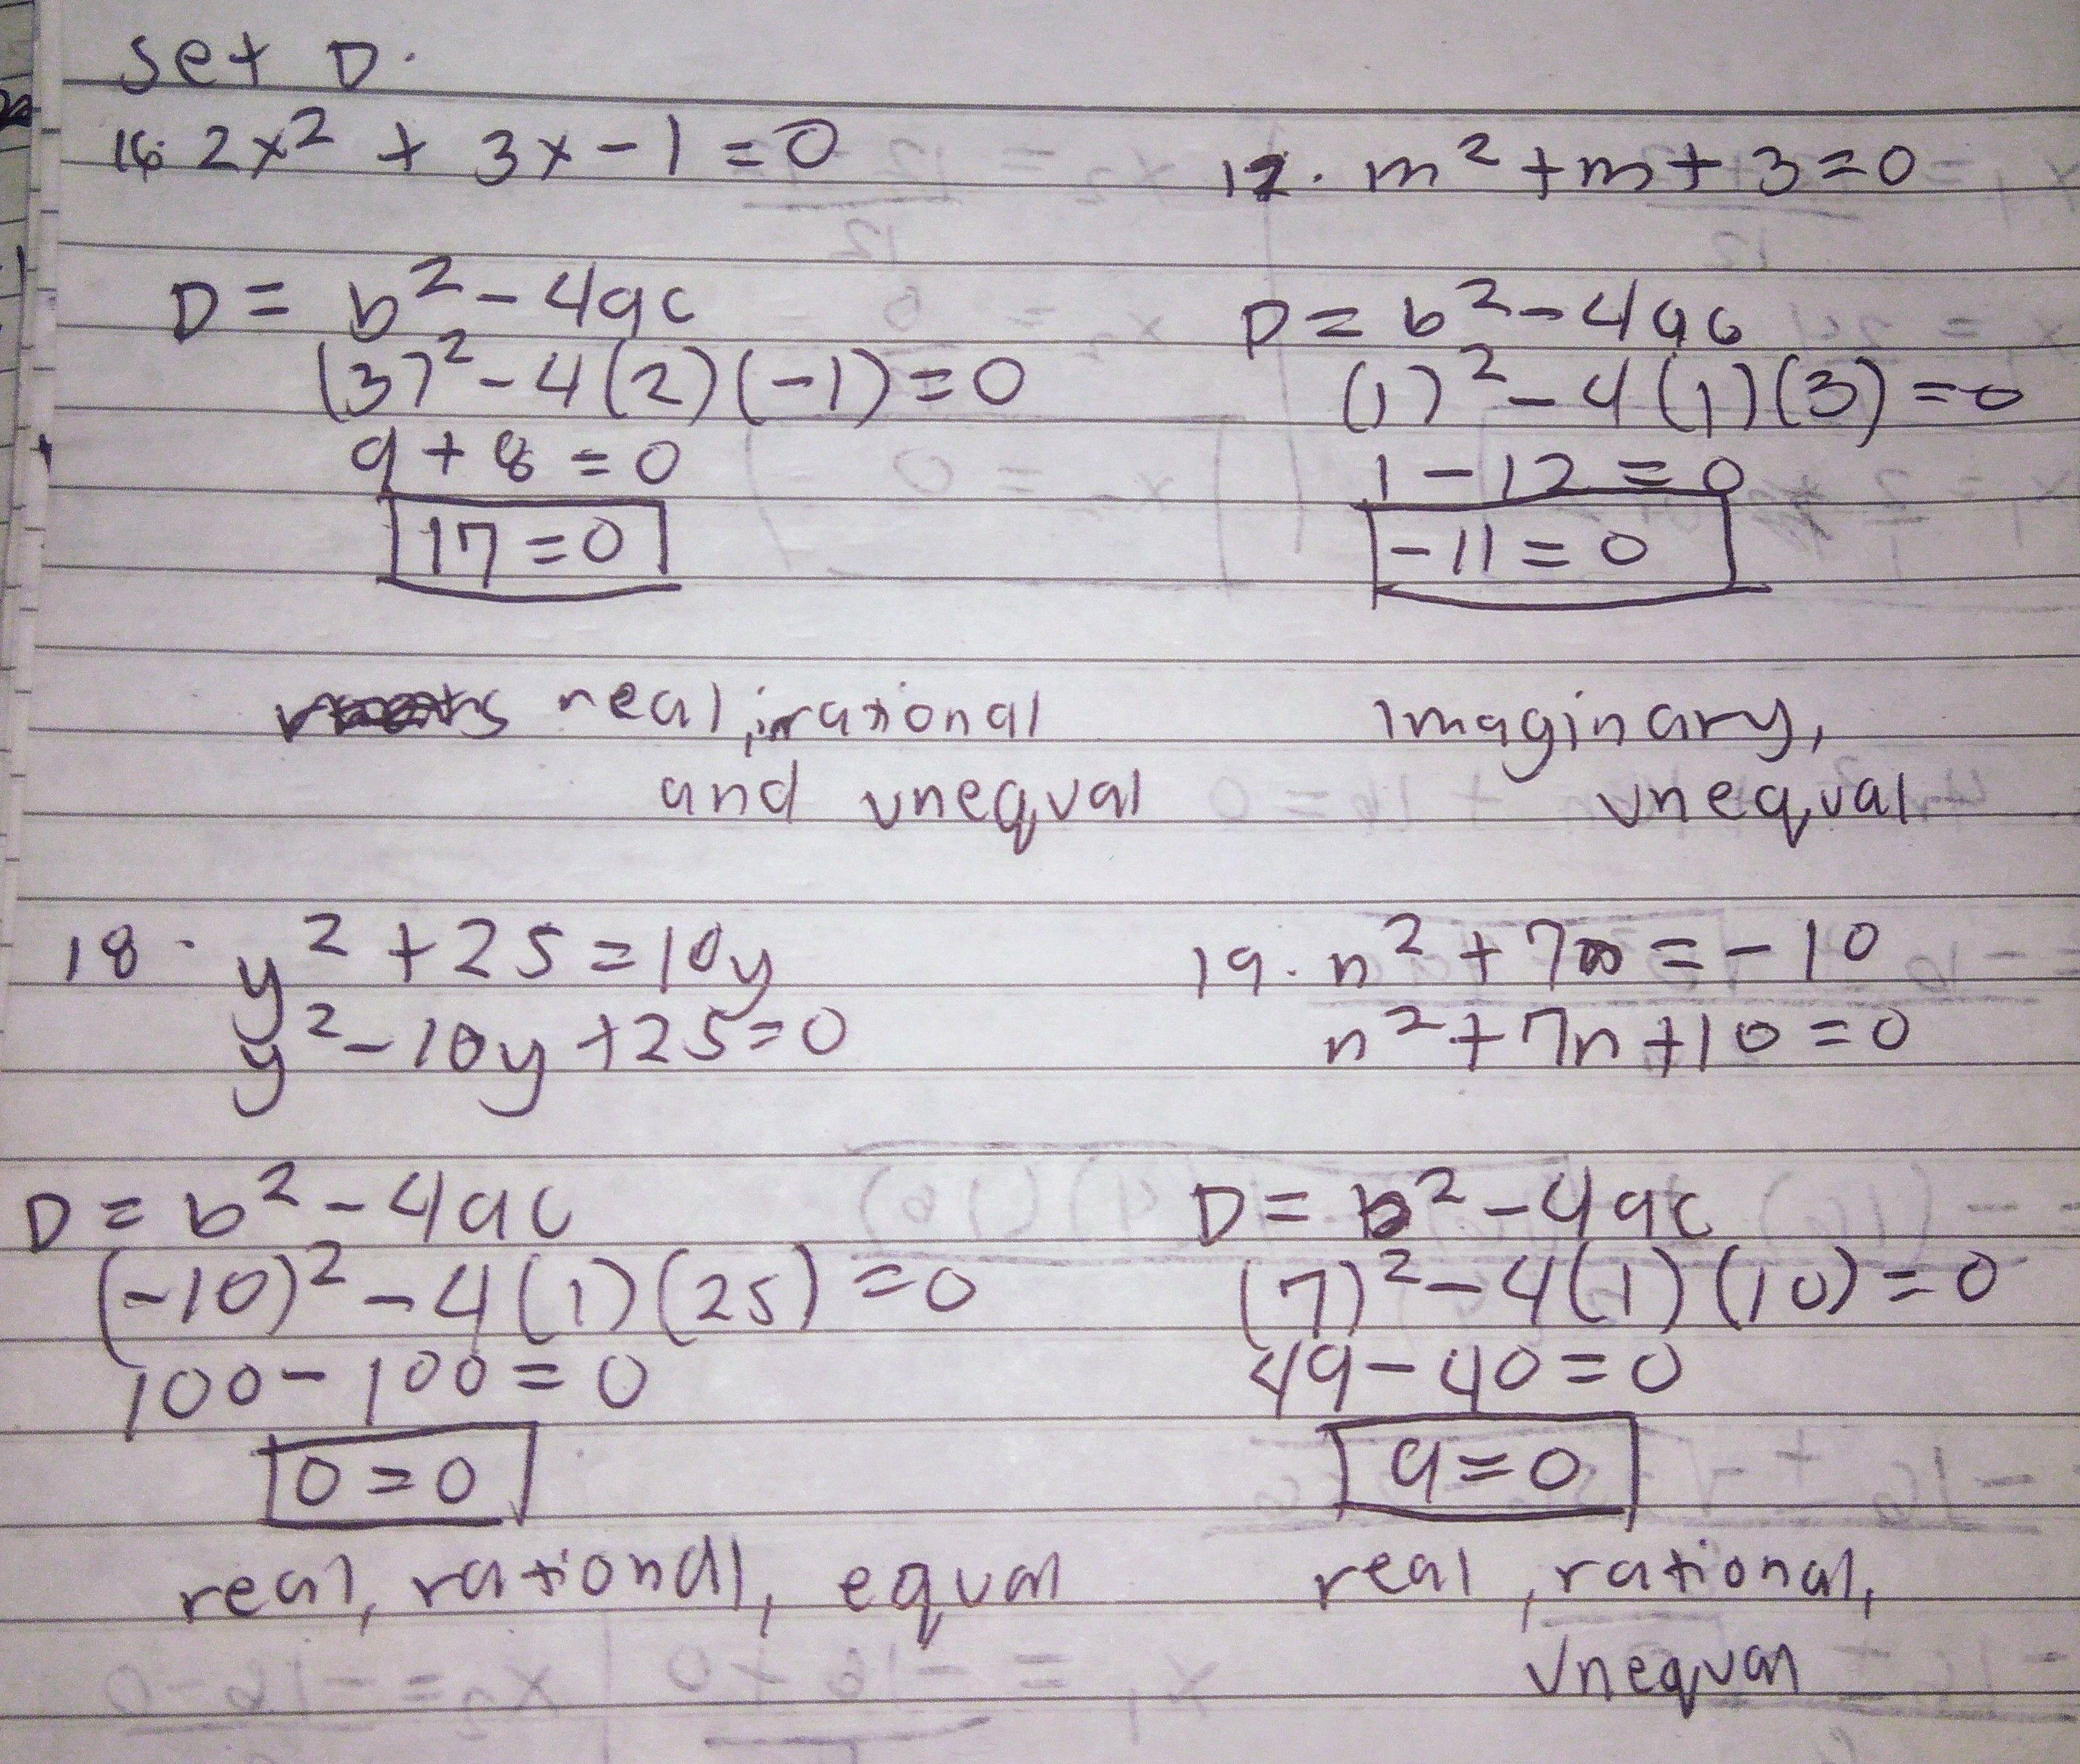 Set D.
16. 2x² + 3x - 1 = 0
D = b² - 4ac
(3)² - 4(2)(-1) = 0
9 + 8 = 0
17 = 0
real, irrational
and unequal
17. m² + m + 3 = 0
D = b² - 4ac
(1)² - 4(1)(3) = 0
1 - 12 = 0
-11 = 0
Imaginary,
unequal
18. y² + 25 = 10y
y² - 10y + 25 = 0
D = b² - 4ac
(-10)² - 4(1)(25) = 0
100 - 100 = 0
0 = 0
real, rational, equal
19. n² + 7n = -10
n² + 7n + 10 = 0
D = b² - 4ac
(7)² - 4(1)(10) = 0
49 - 40 = 0
9 = 0
real, rational,
unequal